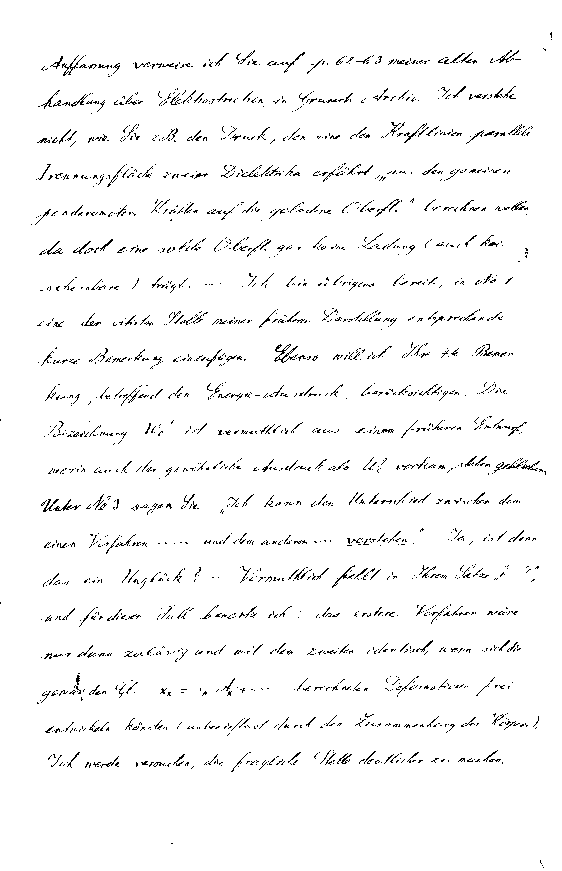 Auffassung verweise ich Sie auf p. 62-63 meiner alten Ab-
handlung über Elektrostriction in Grunert's Archiv. Ich verstehe
nicht, wie Sie z.B. den Druck, den eine den Kraftlinien parallele
Trennungsfläche zweier Dielektrika erfährt "aus den gemeinen
ponderomotor. Kräften auf die geladene Oberfl." berechnen wollen
da doch eine solche Oberfl. gar keine Ladung (auch kei
scheinbare) trägt. — Ich bin übrigens bereit, in No 1
eine der citirten Stelle meiner frühren Darstellung entsprechende
kurze Bemerkung einzufügen. Ebenso will ich Ihre Bemer
kung, betreffend den Energie-Ausdruck, berücksichtigen. Die
Bezeichnung ist vermuthlich aus einem früheren Entwurf,
worin auch der gewöhnliche Ausdruck als vorkam, stehen geblieben.
Unter No 3 sagen Sie "Ich kann den Unterschied zwischen dem
einen Verfahren ---- und dem anderen --- verstehen." Ja, ist denn
das ein Unglück? - Vermuthlich fehlt in Ihrem Satze
und für diesen Fall bemerke ich: das erstere Verfahren wäre
nur dann zulässig und mit dem zweiten identisch, wenn sich die
gemäss den Gl. berechneten Deformationen frei
entwickeln könnten (unbeeinflusst durch den Zusammenhang des Körpers).
Ich werde versuchen, die fragliche Stelle deutlicher zu machen.